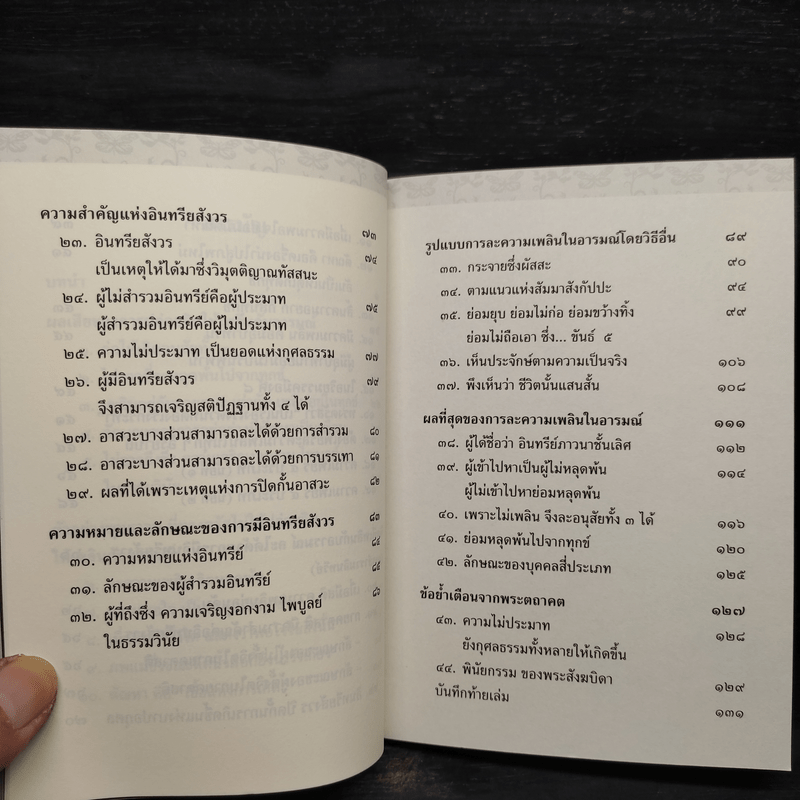 ความสำคัญแห่งอินทรียสังวร ๗๓
๒๓. อินทรียสังวร ๗๔
เป็นเหตุให้ได้มาซึ่งวิมุตติญาณทัสสนะ
๒๔. ผู้ไม่สำรวมอินทรีย์คือผู้ประมาท ๗๕
ผู้สำรวมอินทรีย์คือผู้ไม่ประมาท
๒๕. ความไม่ประมาท เป็นยอดแห่งกุศลธรรม ๗๗
๒๖. ผู้มีอินทรียสังวร ๗๙
จึงสามารถเจริญสติปัฏฐานทั้ง ๔ ได้
๒๗. อาสวะบางส่วนสามารถละได้ด้วยการสำรวม ๘๐
๒๘. อาสวะบางส่วนสามารถละได้ด้วยการบรรเทา ๘๑
๒๙. ผลที่ได้เพราะเหตุแห่งการปิดกั้นอาสวะ ๘๒
ความหมายและลักษณะของการมีอินทรียสังวร ๘๓
๓๐. ความหมายแห่งอินทรีย์
๓๑. ลักษณะของผู้สำรวมอินทรีย์
๓๒. ผู้ที่ถึงซึ่ง ความเจริญงอกงาม ไพบูลย์ ๘๖
ในธรรมวินัย
รูปแบบการละความเพลินในอารมณ์โดยวิธีอื่น ๘๙
๓๓. กระจายซึ่งผัสสะ ๙๐
๓๔. ตามแนวแห่งสัมมาสังกัปปะ ๙๔
๓๕. ย่อมยุบ ย่อมไม่ก่อ ย่อมขว้างทิ้ง ๙๙
ย่อมไม่ถือเอา ซึ่ง... ขันธ์ ๕
๓๖. เห็นประจักษ์ตามความเป็นจริง ๑๐๖
๓๗. พึงเห็นว่า ชีวิตนั้นแสนสั้น ๑๐๘
ผลที่สุดของการละความเพลินในอารมณ์ ๑๑๑
๓๘. ผู้ได้ชื่อว่า อินทรีย์ภาวนาชั้นเลิศ ๑๑๒
๓๙. ผู้เข้าไปหาเป็นผู้ไม่หลุดพ้น ๑๑๔
ผู้ไม่เข้าไปหาย่อมหลุดพ้น
๔๐. เพราะไม่เพลิน จึงละอนุสัยทั้ง ๓ ได้ ๑๑๖
๔๑. ย่อมหลุดพ้นไปจากทุกข์ ๑๒๐
๔๒. ลักษณะของบุคคลสี่ประเภท ๑๒๕
ข้อย้ำเตือนจากพระตถาคต ๑๒๗
๔๓. ความไม่ประมาท ๑๒๘
ยังกุศลธรรมทั้งหลายให้เกิดขึ้น
๔๔. พินัยกรรม ของพระสังฆบิดา ๑๒๙
บันทึกท้ายเล่ม ๑๓๑